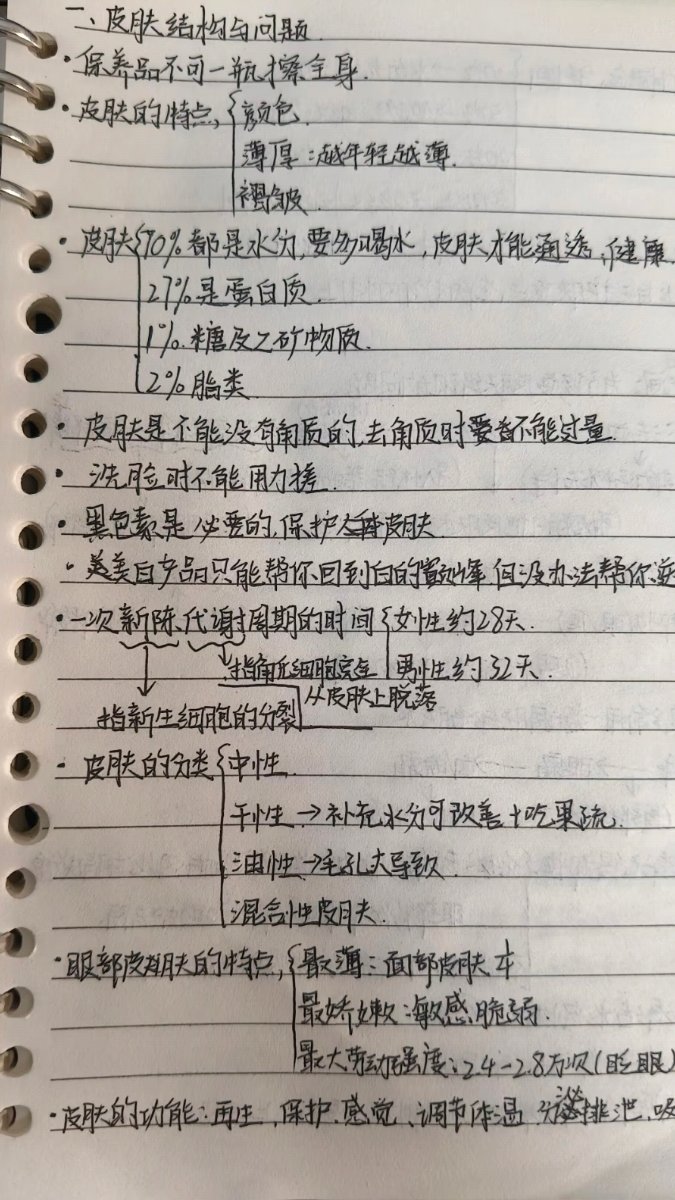 一、皮肤结构与问题.
·保养品不可一瓶擦全身.
·皮肤的特点, 颜色.
薄厚:越年轻越薄.
褶皱.
·皮肤 70%都是水份,要多喝水,皮肤才能通透、健康.
27%是蛋白质.
1%.糖及乙矿物质.
2%脂类.
·皮肤是不能没有角质的,去角质时要 不能过量.
·洗脸时不能用力搓.
·黑色素是必要的,保护 皮肤.
·美白产品只能帮你回到白的 但没办法帮你逆
·一次新陈、代谢周期的时间 女性约28天.
指角质细胞完全 男性约32天.
从皮肤上脱落
指新生细胞的分裂
·皮肤的分类 中性.
干性→补充水分可改善+吃果蔬.
油性→毛孔大导致.
混合性皮肤.
·眼部皮肤的特点, 最薄:面部皮肤
最娇嫩:敏感脆弱.
最大劳动强度:2.4-2.8万次(眨眼)
·皮肤的功能:再生、保护.感觉、调节体温 分泌排泄、吸